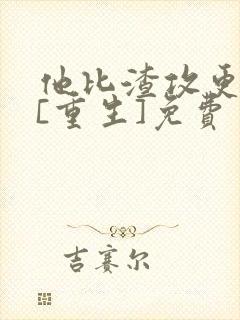 他比渣攻更
[重生]免费
吉赛尔